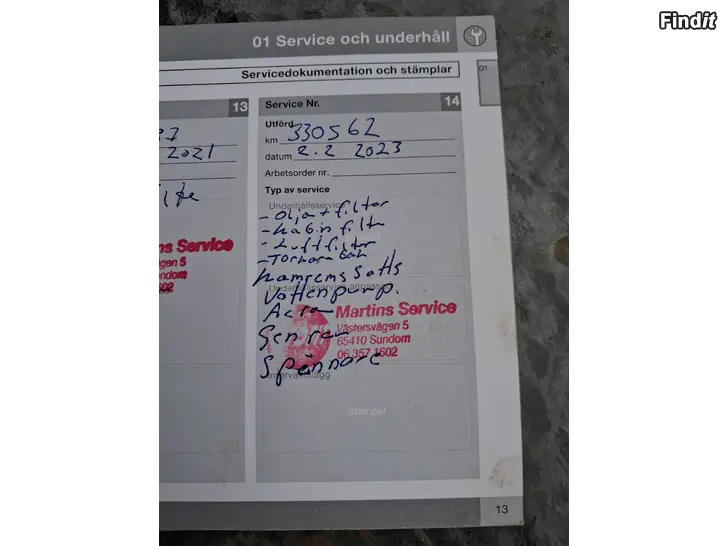 Findit
01 Service och underhåll
Servicedokumentation och stämplar
01
13
2021
ns Service
gen 5
ndom
502
Service Nr. 14
Utförd
km 330562
datum 2.2 2023
Arbetsorder nr.
Typ av service
Underhållsservice
- olja + filter
- kabin filte
- Luftfilter
- Torkarabak
kamremssatts
Vattenpump.
Spännare
Martins Service
Västersvägen 5
65410 Sundom
06 357 1602
Intervalltillägg
Stämpel
13